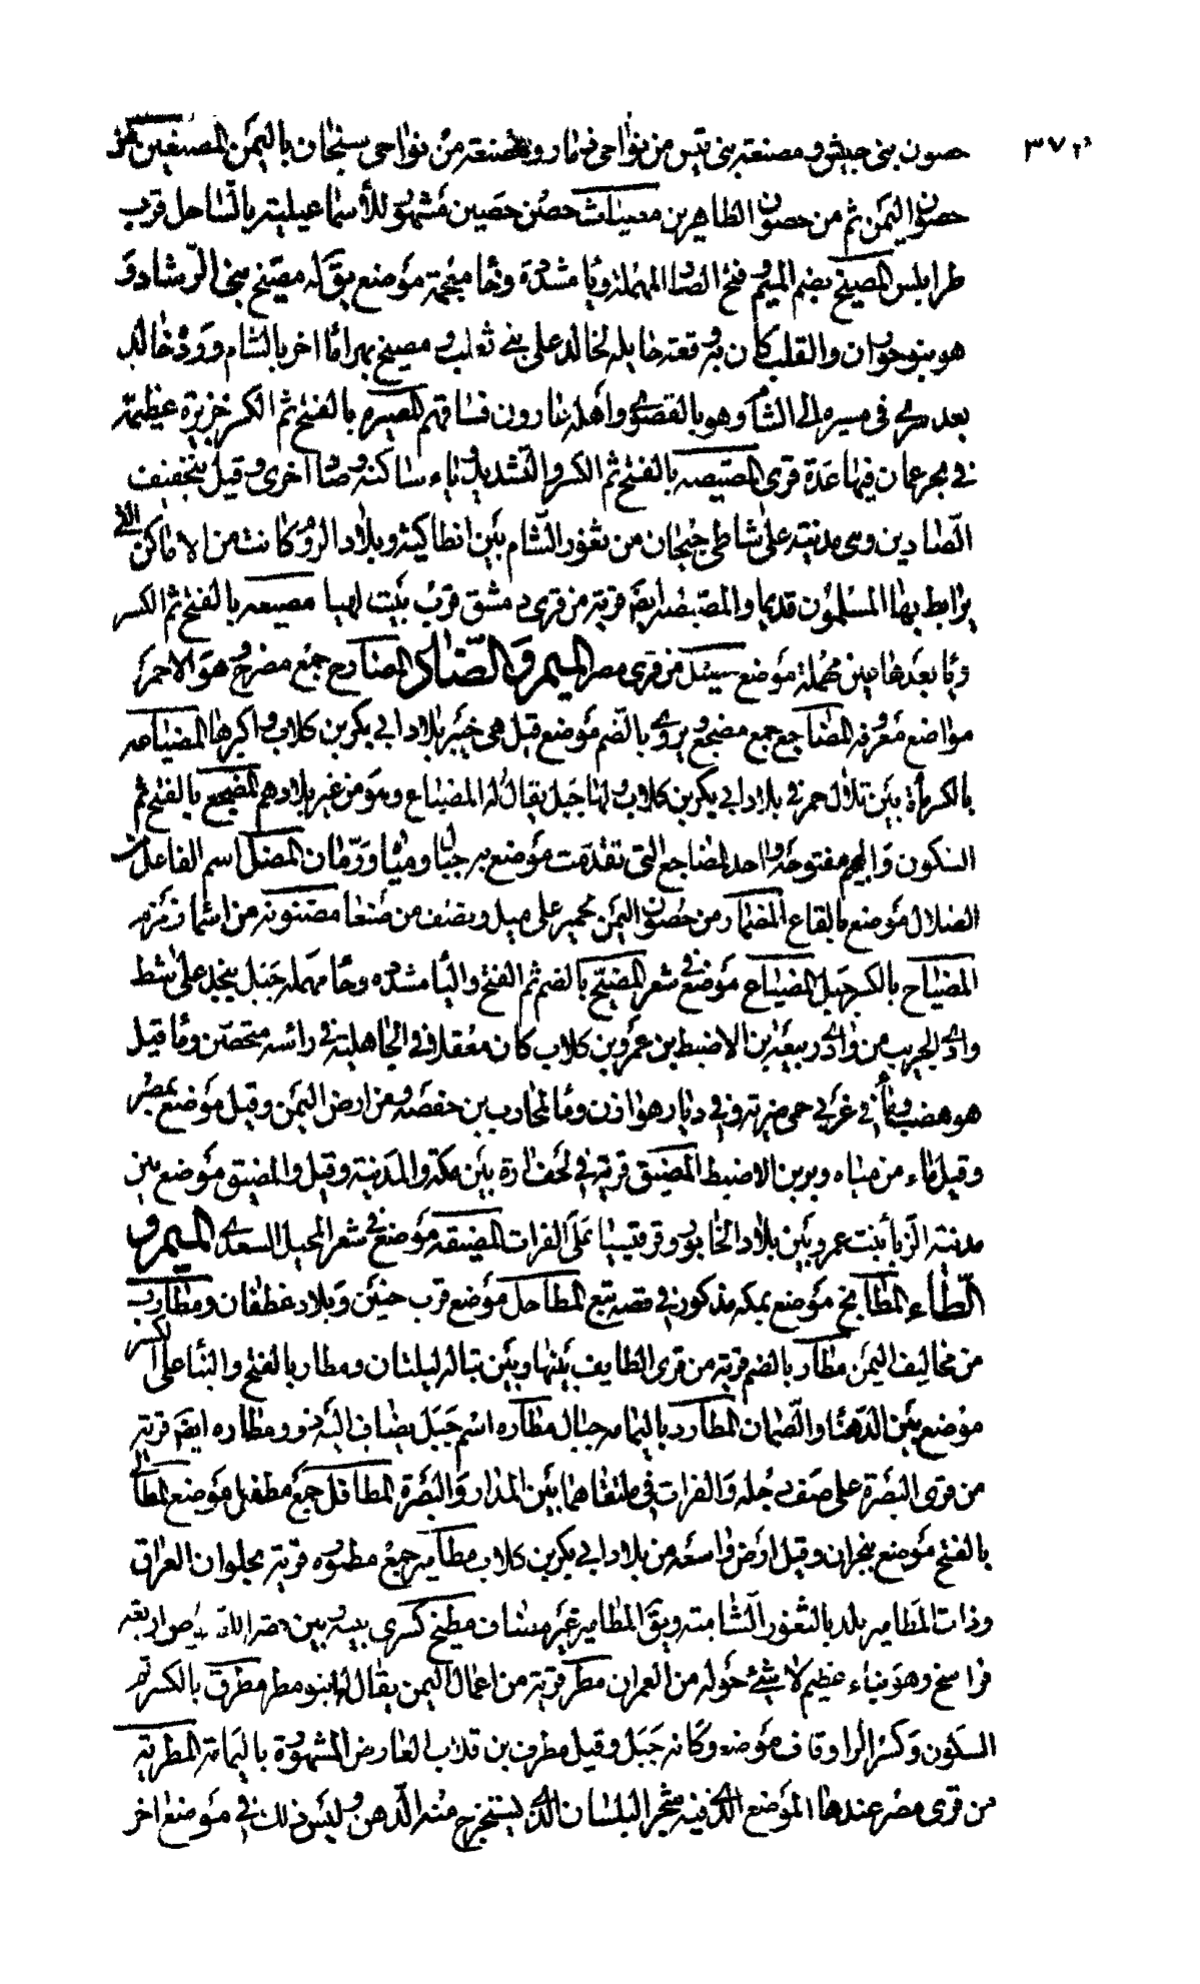 ٣٧٢
حصون بنى حبيش و مصنعة بنى قيس من نواحى ذمار و مصنعة من نواحى سنحان باليمن المصنعين من
حصون اليمن ثم من حصون الظاهرين مصياث حصن حصين مشهور للأسماعيلية بالساحل قرب
طرابلس المصيخ بضم الميم و فتح الصاد المهملة ويا مشددة وخا معجمة موضع يق له مصيخ بنى الرشاد و
هو بنو حوران والقلب كان به وقعة هايلة لخالد على بنى ثعلب و مصيخ بهراما اخر بالشام وورد خالد
بعد سرى فى مسيره الى الشام وهو بالقصوى واهله غارون فساقهم المصيره بالفتح ثم الكسر جزيرة عظيمة
فى بحر عمان فيها عدة قرى المصيصه بالفتح ثم الكسر والتشديد وياء ساكنة وصاد اخرى وقيل بتخفيف
الصادين وهى مدينة على شاطى جيحان من ثغور الشام بين انطاكية وبلاد الروم كانت من الاماكن التى
يرابط بها المسلمون قديما والمصيصة ايضا قرية من قرى دمشق قرب بيت لهيا مصيعه بالفتح ثم الكسر
ويا بعدها عين مهملة موضع سيئل من قرى مصر الميم و الضاد المضارج جمع مضرج و هو الاحمر
مواضع معروفة المضاجع جمع مضجع ويروى بالضم موضع قيل هى خير بلاد ابى بكر بن كلاب و اكبرها المضياعه
بالكسر ماة بين تلال حمر فى بلاد ابى بكر بن كلاب و لها جبل يقال له المضياع وهو من غير بلادهم المضجع بالفتح ثم
السكون والجيم مفتوحة واحد المضاجع التى تقدمت موضع به جبال ومياه ورمان المضل اسم الفاعل من
الضلال موضع بالقاع المضمار من حصون اليمن لحمير على ميل ونصف من صنعا مضنونة من اسما زمزم
المضياح بالكسر جبل المضياع موضع فى شعر المضيح بالضم ثم الفتح واليا مشددة وحا مهملة جبل بنجد على شط
وادى الجريب من وادى ربيعة بن الاضبط بن عمرو بن كلاب كان معقلا فى الجاهلية فى راسه متحصن وما قيل
هو هضب وما فى غربى حمى ضرية و فى ديار هوازن وما لمحارب بن خفصه و من ارض اليمن وقيل موضع بمصر
وقيل ماء من مياه وبر بن الاضبط المضيق قرية فى لحف اره بين مكة والمدينة وقيل والمضيق موضع بين
مدينة الزبا بنت عمرو بين بلاد الخابور وقرقيسيا على الفرات المضيقة موضع فى شعر المحبل السعدى الميم و
الطاء المطابخ موضع بمكة مذكور فى قصة تبع المطاحل موضع قرب حنين وبلاد غطفان ومطارب
من مخاليف اليمن مطار بالضم قرية من قرى الطايف بينها وبين تباله ليلتان ومطار بالفتح والبنا على الكسر
موضع بين الدهنا والصمان المطارد باليمامه جبال مطاره اسم جبل يضاف اليه ذو ومطاره ايضا قرية
من قرى البصرة على ضف دجلة والفرات فى ملتقاهما بين المذار والبصرة المطافل جمع مطفل موضع المطالى
بالفتح موضع بنجران وقيل ارض واسعة من بلاد ابى بكر بن كلاب مطامير جمع مطموره قرية بحلوان العراق
وذات المطامير بلد بالثغور الشامية ويق المطامير غير مضاف مطبخ كسرى بينه وبين قصر اللصوص اربعة
فراسخ وهو بناء عظيم لا شئ حوله من العمران مطر قرية من اعمال اليمن يقال لها بنو مطر مطرق بالكسر ثم
السكون وكسر الرا وقاف موضع وكانه جبل وقيل مطرق بن قلاب العارض المشهورة باليمامة المطرية
من قرى مصر عندها الموضع الذى فيه شجر البلسان الذى يستخرج منه الدهن وليس ذلك فى موضع اخر